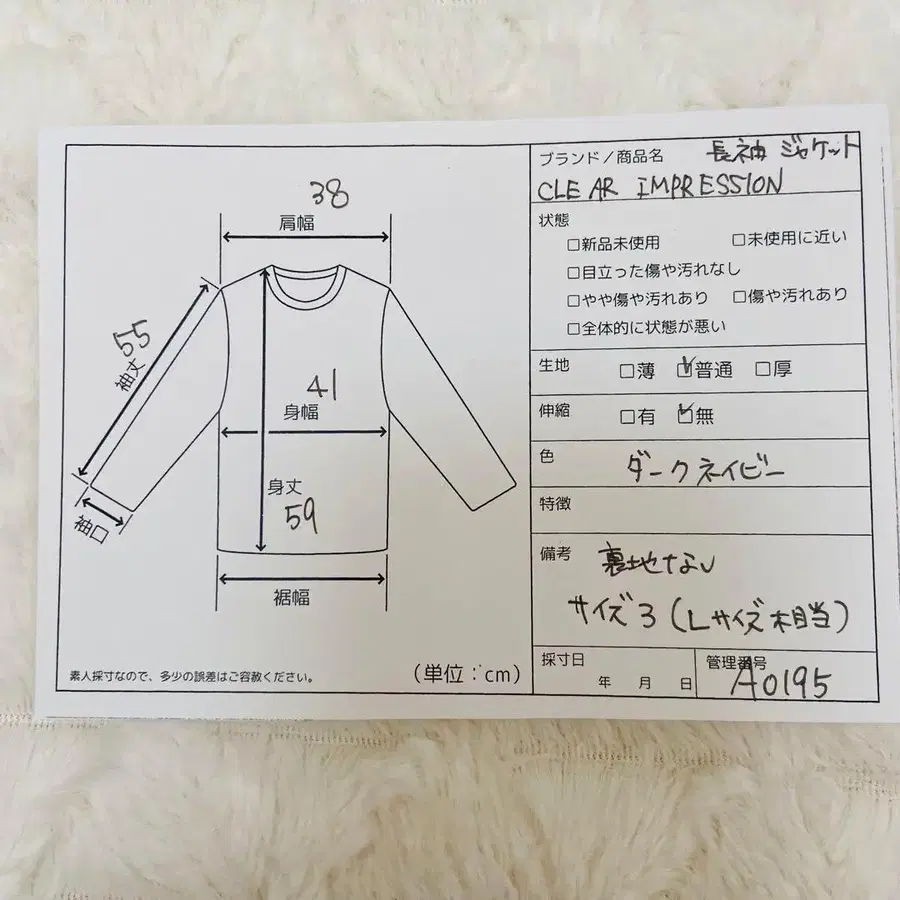 38
肩幅
55
袖丈
41
身幅
身丈
59
袖口
裾幅
素人採寸なので、多少の誤差はご容赦ください。
(単位:cm)
ブランド/商品名 長袖 ジャケット
CLEAR IMPRESSION
状態
□新品未使用 □未使用に近い
□目立った傷や汚れなし
□やや傷や汚れあり □傷や汚れあり
□全体的に状態が悪い
生地 □薄 ☑普通 □厚
伸縮 □有 ☑無
色 ダークネイビー
特徴
備考 裏地なし
サイズ3(Lサイズ相当)
採寸日
年 月 日
管理番号
A0195